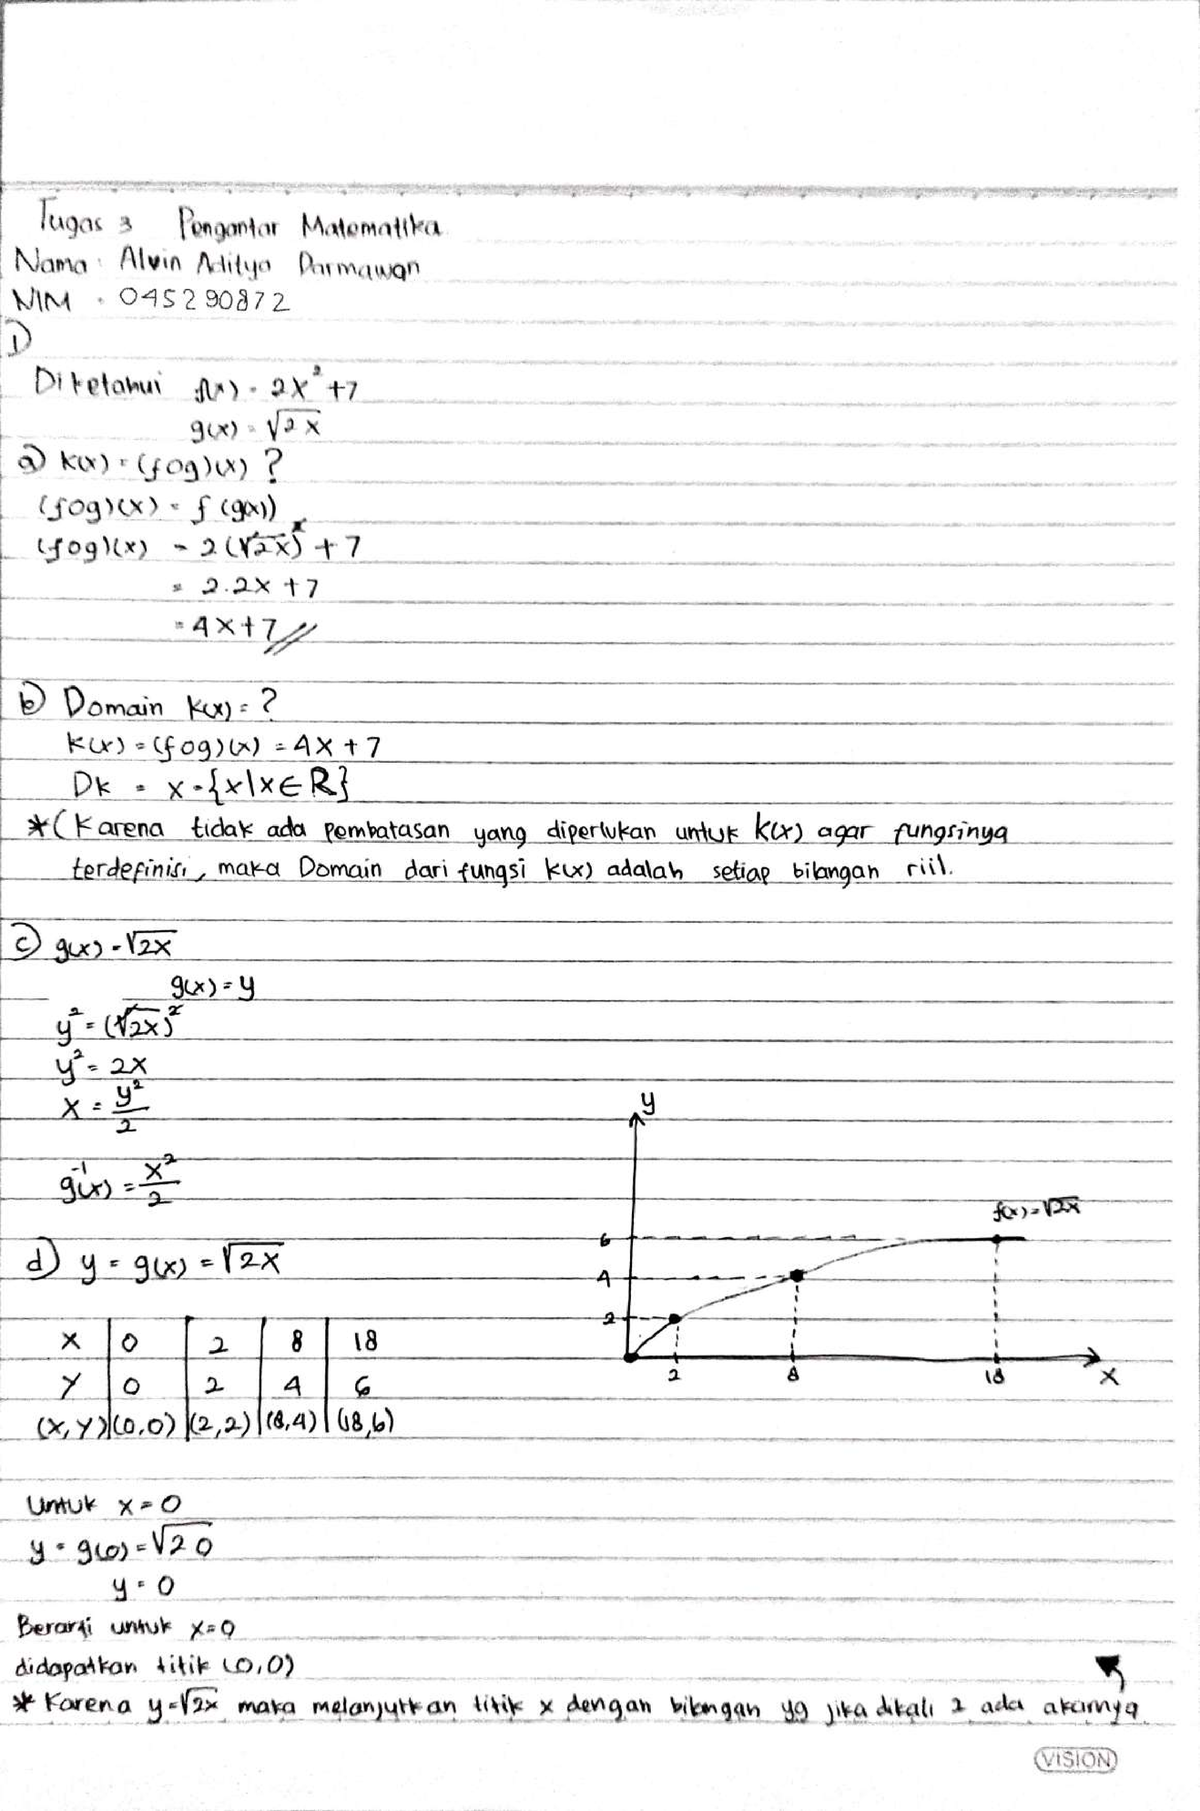 Tugas 3 Pengantar Matematika
Nama : Alvin Aditya Darmawan
NIM : 045290872
1)
Diketahui f(x) = 2x² + 7
g(x) = √2x
a) k(x) = (fog)(x) ?
(fog)(x) = f(g(x))
(fog)(x) = 2(√2x)² + 7
= 2.2x + 7
= 4x + 7 //
b) Domain k(x) = ?
k(x) = (fog)(x) = 4x + 7
Dk = x = {x|x ∈ R}
*(Karena tidak ada pembatasan yang diperlukan untuk k(x) agar fungsinya
terdefinisi, maka Domain dari fungsi k(x) adalah setiap bilangan riil.
c) g(x) = √2x
g(x) = y
y² = (√2x)²
y² = 2x
x = y²/2
g⁻¹(x) = x²/2
d) y = g(x) = √2x
x | 0 | 2 | 8 | 18
y | 0 | 2 | 4 | 6
(x,y) | (0,0) | (2,2) | (8,4) | (18,6)
y
f(x) = √2x
6
4
2
2 8 18 x
Untuk x = 0
y = g(0) = √2 0
y = 0
Berarti untuk x = 0
didapatkan titik (0,0)
* Karena y = √2x maka melanjutkan titik x dengan bilangan yg jika dikali 2 ada akarnya
VISION